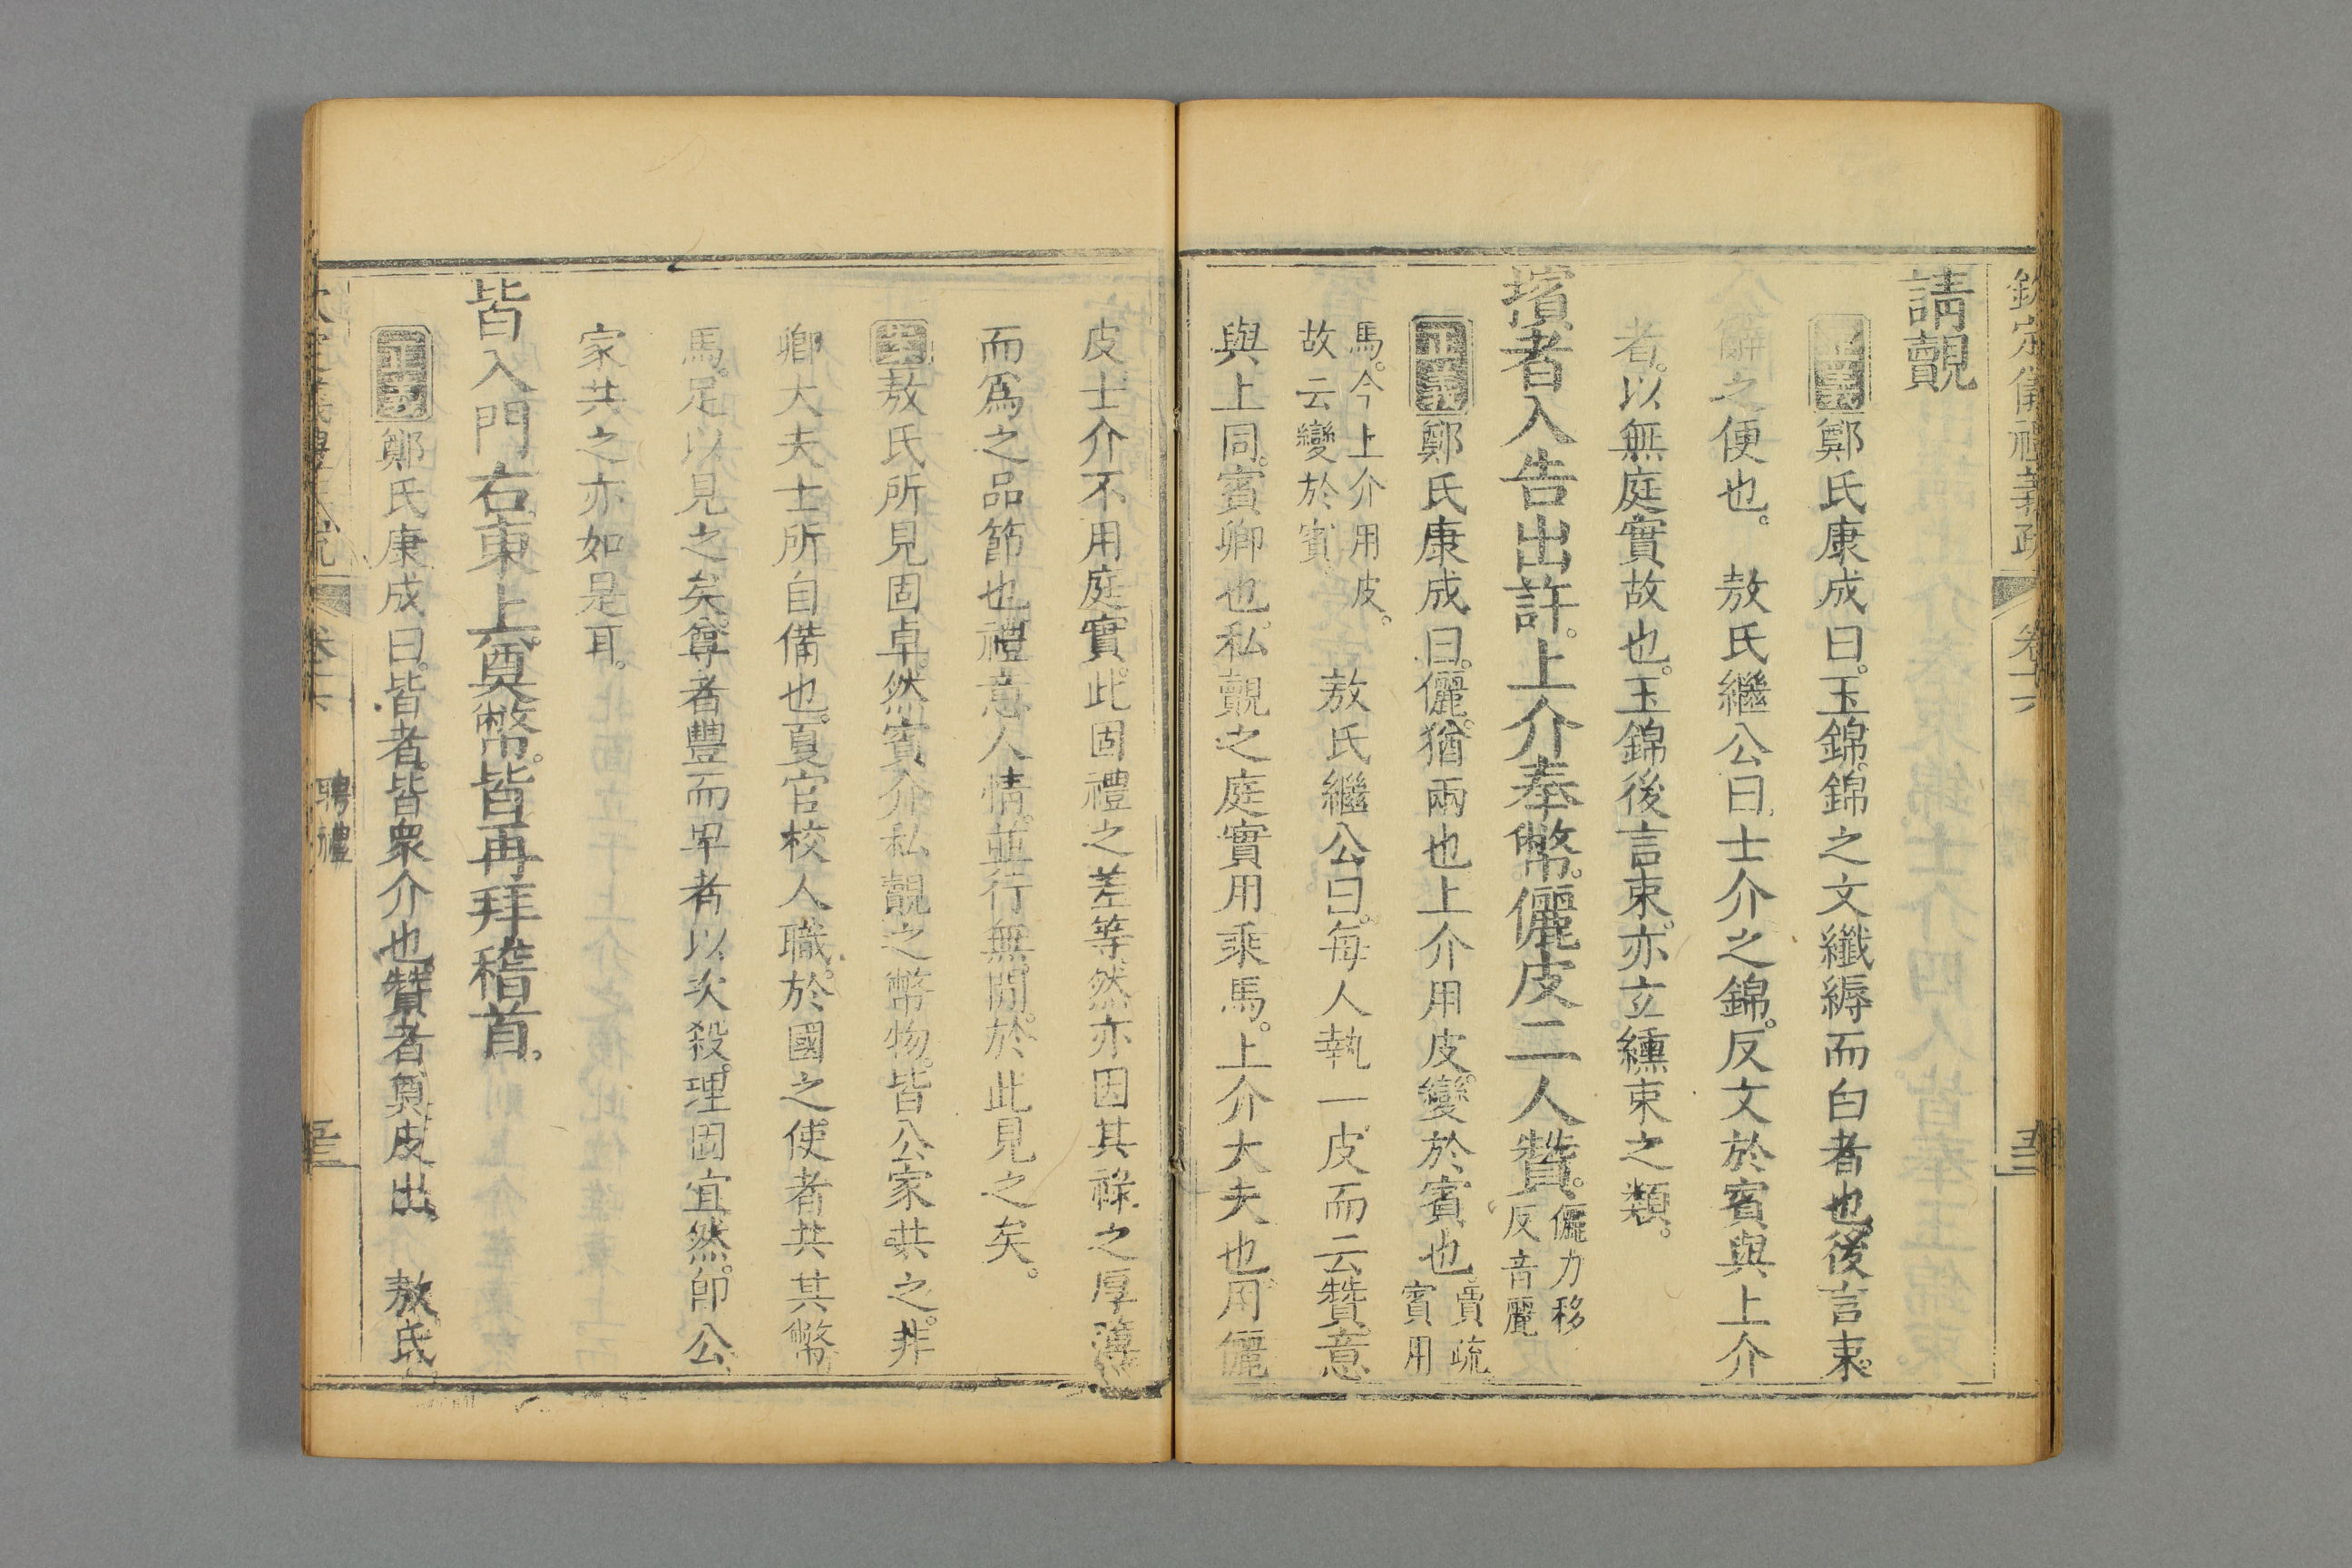 欽定儀禮義疏 卷十六
請覿
正義鄭氏康成曰。玉錦。錦之文纖縟而白者也。後言束。
辭之便也。 敖氏繼公曰。士介之錦。反文於賓與上介
者。以無庭實故也。玉錦後言束。亦立纁束之類。
擯者入告出許。上介奉幣。儷皮二人贊。儷力移反音麗
正義鄭氏康成曰。儷。猶兩也。上介用皮。變於賓也賈疏賓用
馬。今上介用皮。故云變於賓 敖氏繼公曰。每人執一皮而云贊。意
與上同。賓卿也。私覿之庭實用乘馬。上介大夫也。用儷
皮士介不用庭實。此固禮之差等。然亦因其祿之厚薄
而爲之品節也。禮意人情。並行無閡。於此見之矣。
敖氏所見固卓。然賓介私覿之幣物。皆公家共之。非
卿大夫士所自備也。夏官校人職。於國之使者共其幣
馬。足以見之矣。尊者豐而卑者以次殺。理固宜然。卽公
家共之亦如是耳。
皆入門右。東上。奠幣。皆再拜稽首。
正義鄭氏康成曰。皆者。皆衆介也。贊者奠皮出。 敖氏
聘禮